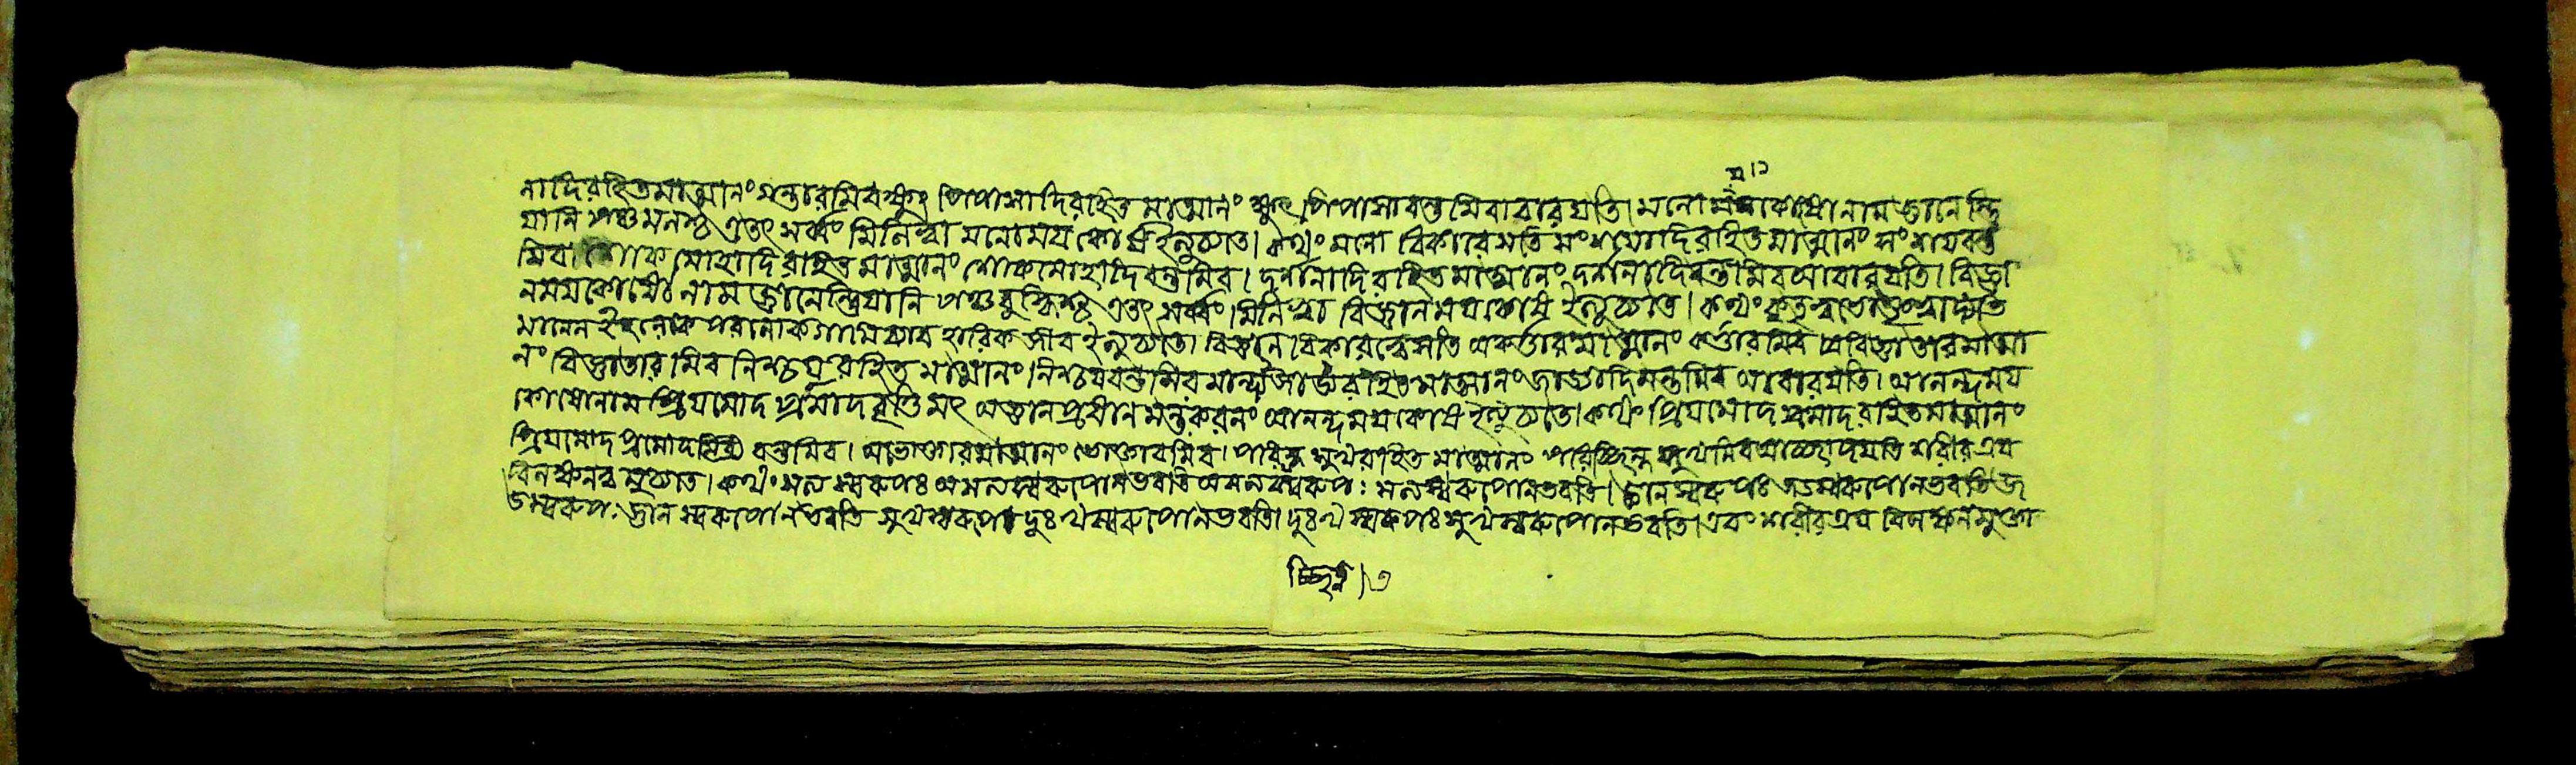 য ১
নাদিরহিতমাত্মানং গন্তারমিবক্ষুৎ পিপাসাদিরহিত মাত্মানং ক্ষুৎপিপাসাবন্তমিবাবারয়তি। মনোময়কোষোনাম জ্ঞানেন্দ্রি
য়ানি পঞ্চমনশ্চ এতৎ সর্ব্বং মিলিত্বা মনোময় কোষইত্যুচ্যতে। কথং মনো বিকারেসতি সংশয়াদিরহিতমাত্মানং সংশয়বন্ত
মিব। শোক মোহাদি রহিত মাত্মানং শোকমোহাদিবন্তমিব। দর্শনাদি রহিতমাত্মানং দর্শনাদিবন্তমিবআবারয়তি। বিজ্ঞা
নময়কোষো নাম জ্ঞানেন্দ্রিয়ানি পঞ্চবুদ্ধিশ্চ এতৎ সর্ব্বং মিলিত্বা বিজ্ঞানময়কোষ ইত্যুচ্যতে। কথং কর্তৃত্বভোক্তৃত্বাদ্যভি
মানেন ইহলোক পরলোকগামিব্যাব হারিক জীব ইত্যুচ্যতে। বিজ্ঞান বিকারত্বেসতি অকর্তারমাত্মানং কর্ত্তারমিব অবিজ্ঞাতারমাত্মা
নং বিজ্ঞাতার মিব নিশ্চয় রহিত মাত্মানং নিশ্চয়বন্তমিব মান্দ্যজাড্যরহিতমাত্মানং জাড্যাদিমন্তমিব আবারয়তি। আনন্দময়
কোষোনাম প্রিয়মোদ প্রমোদবৃত্তিমৎ অজ্ঞানপ্রধান মন্তঃকরনং আনন্দময়কোষ ইত্যুচ্যতে। কথং প্রিয়মোদ প্রমোদ রহিতমাত্মানং
প্রিয়মোদ প্রমোদ বন্তমিব। অভোক্তারমাত্মানং ভোক্তারমিব। পরিচ্ছিন্ন সুখরহিত মাত্মানং পরিচ্ছিন্ন সুখমিবআচ্ছাদয়তি শরীরত্রয়
বিলক্ষনত্ব মুচ্যতে। কথং সৎ স্বরূপঃ অসৎস্বরূপোনভবতি অসৎস্বরূপঃ সৎস্বরূপোনভবতি। জ্ঞানস্বরূপঃ জড়স্বরূপোনভবতি জ
ড়স্বরূপঃ জ্ঞান স্বরূপোনভবতি সুখস্বরূপঃ দুঃখস্বরূপোনভবতি। দুঃখস্বরূপঃ সুখস্বরূপোনভবতি। এবং শরীরত্রয় বিলক্ষনমুক্তা